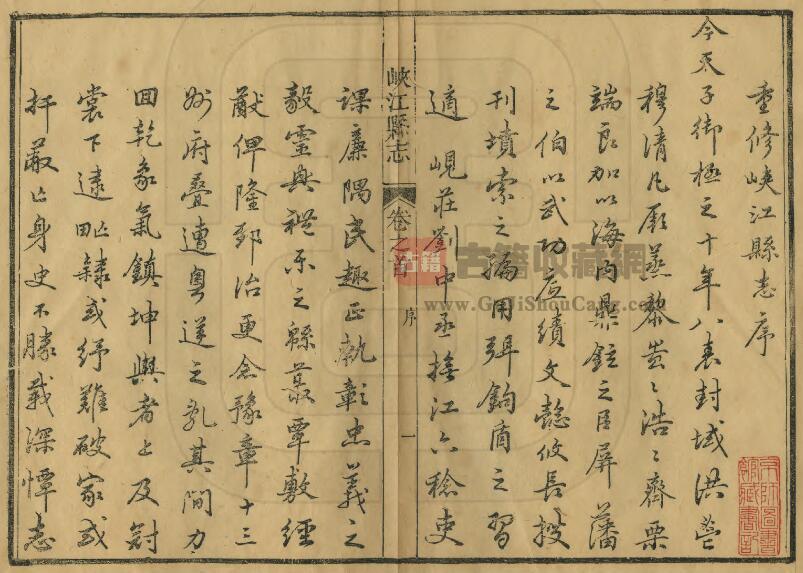 重修峽江縣志序
今天子御極之十年八表封域洪營
穆清凡厥蒸黎蚩〻浩〻齊栗
端良加以海內鼎鉉之臣屏藩
之伯以武功応績文懿攸長披
刊墳索之編用弭鉤商之習
適峴莊劉中丞撫江六稔吏
峽江縣志
卷之首
序
一
課廉隅民趣正執彰忠義之
靈與禮乐之繇蕞覃敷經
猷俾隆郅治更念豫章十三
州府疊遭粵逆之乱其間力
回乾象氣鎮坤輿者上及
裳下逮隸或紓難破家或
扞蔽亡身史不勝載深憚志
古籍收藏網
www.GuJiShouCang.com